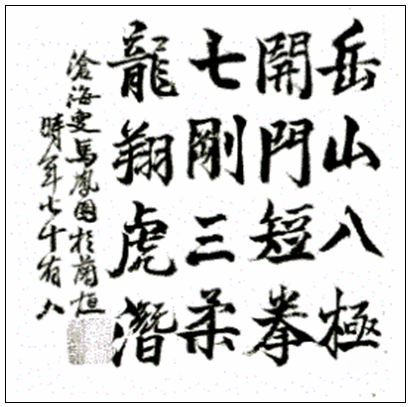 岳山八極
開門短拳
七剛三柔
龍翔虎潛
滄海叟馬鳳图於蘭垣
時年七十有八